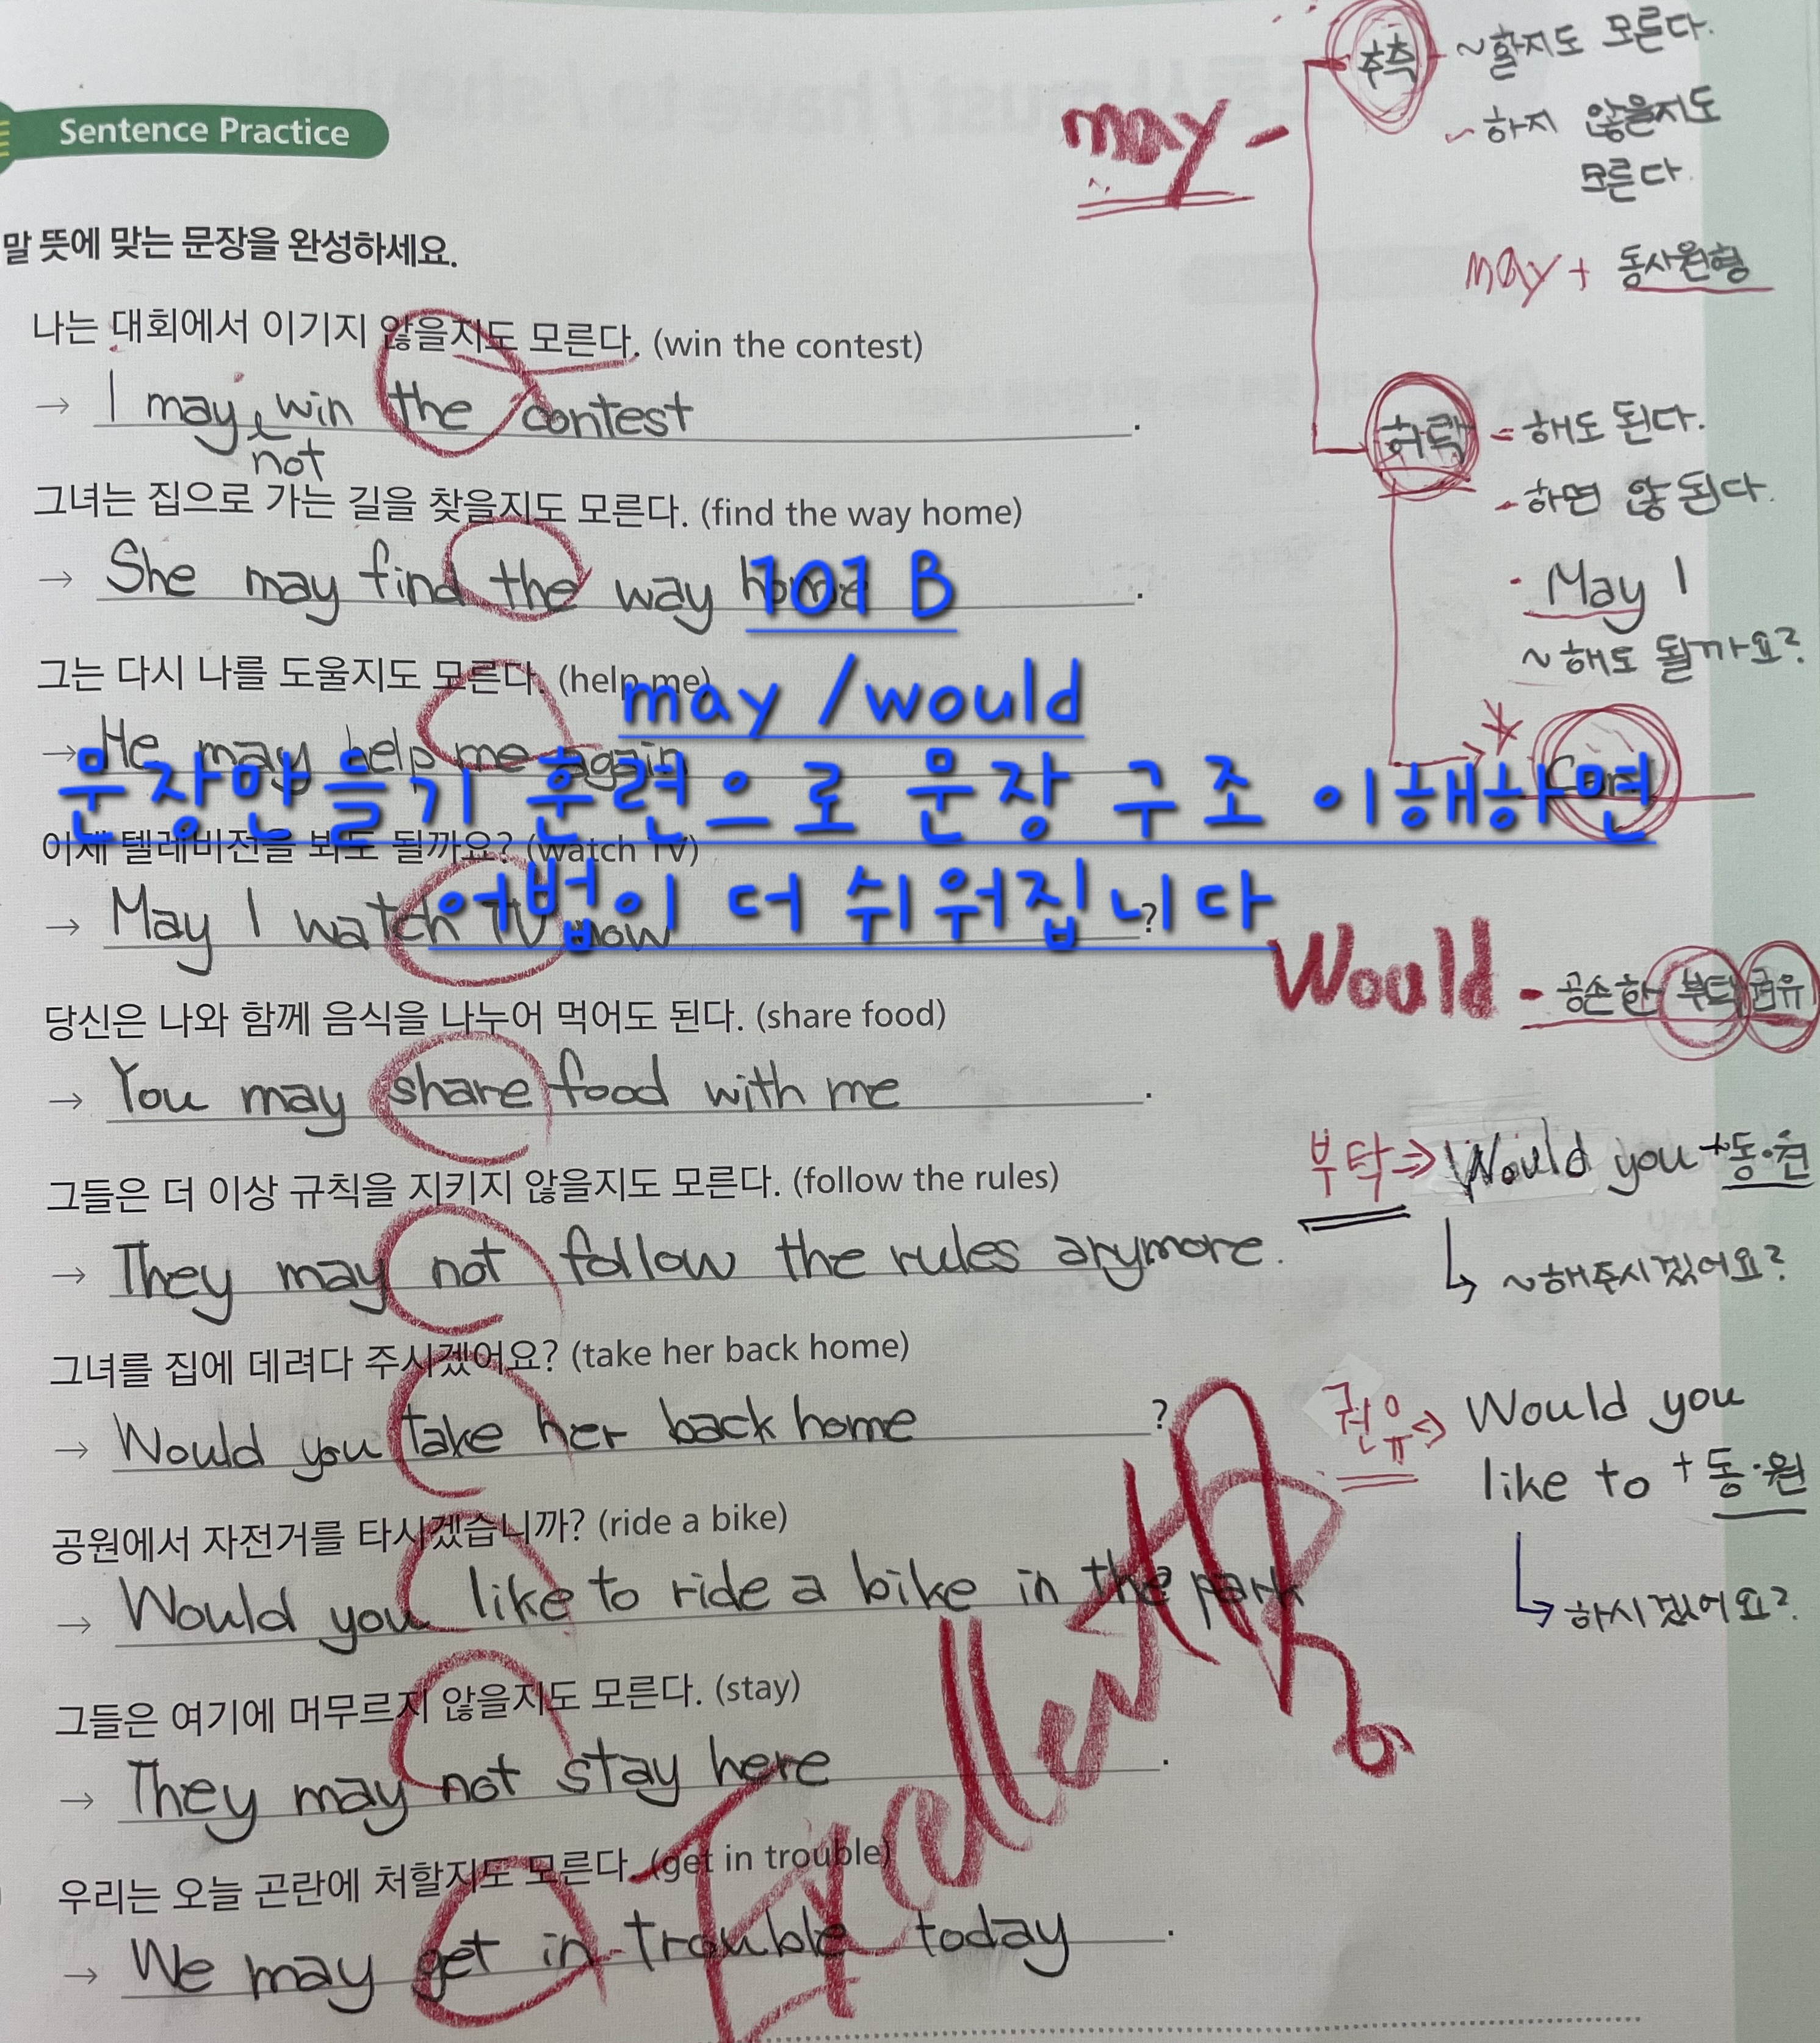 Sentence Practice
말 뜻에 맞는 문장을 완성하세요.
나는 대회에서 이기지 않을지도 모른다. (win the contest)
→ I may win the contest.
not
그녀는 집으로 가는 길을 찾을지도 모른다. (find the way home)
→ She may find the way home.
그는 다시 나를 도울지도 모른다. (help me)
→ He may help me again
이제 텔레비전을 봐도 될까요? (watch TV)
→ May I watch TV now?
당신은 나와 함께 음식을 나누어 먹어도 된다. (share food)
→ You may share food with me.
그들은 더 이상 규칙을 지키지 않을지도 모른다. (follow the rules)
→ They may not follow the rules anymore.
그녀를 집에 데려다 주시겠어요? (take her back home)
→ Would you take her back home?
공원에서 자전거를 타시겠습니까? (ride a bike)
→ Would you like to ride a bike in the park
그들은 여기에 머무르지 않을지도 모른다. (stay)
→ They may not stay here.
우리는 오늘 곤란에 처할지도 모른다. (get in trouble)
→ We may get in trouble today.
Excellent
101 B
may /would
문장만들기 훈련으로 문장 구조 이해하면
어법이 더 쉬워집니다
may -
추측 - ~할지도 모른다.
- 하지 않을지도
모른다.
may + 동사원형
허락 - 해도 된다.
- 하면 않 된다.
· May I
~해도 될까요?
* Can
Would - 공손한 부탁 권유
부탁 ⇒ Would you + 동·원
↳ ~해주시겠어요?
권유 ⇒ Would you
like to + 동·원
↳ 하시겠어요?